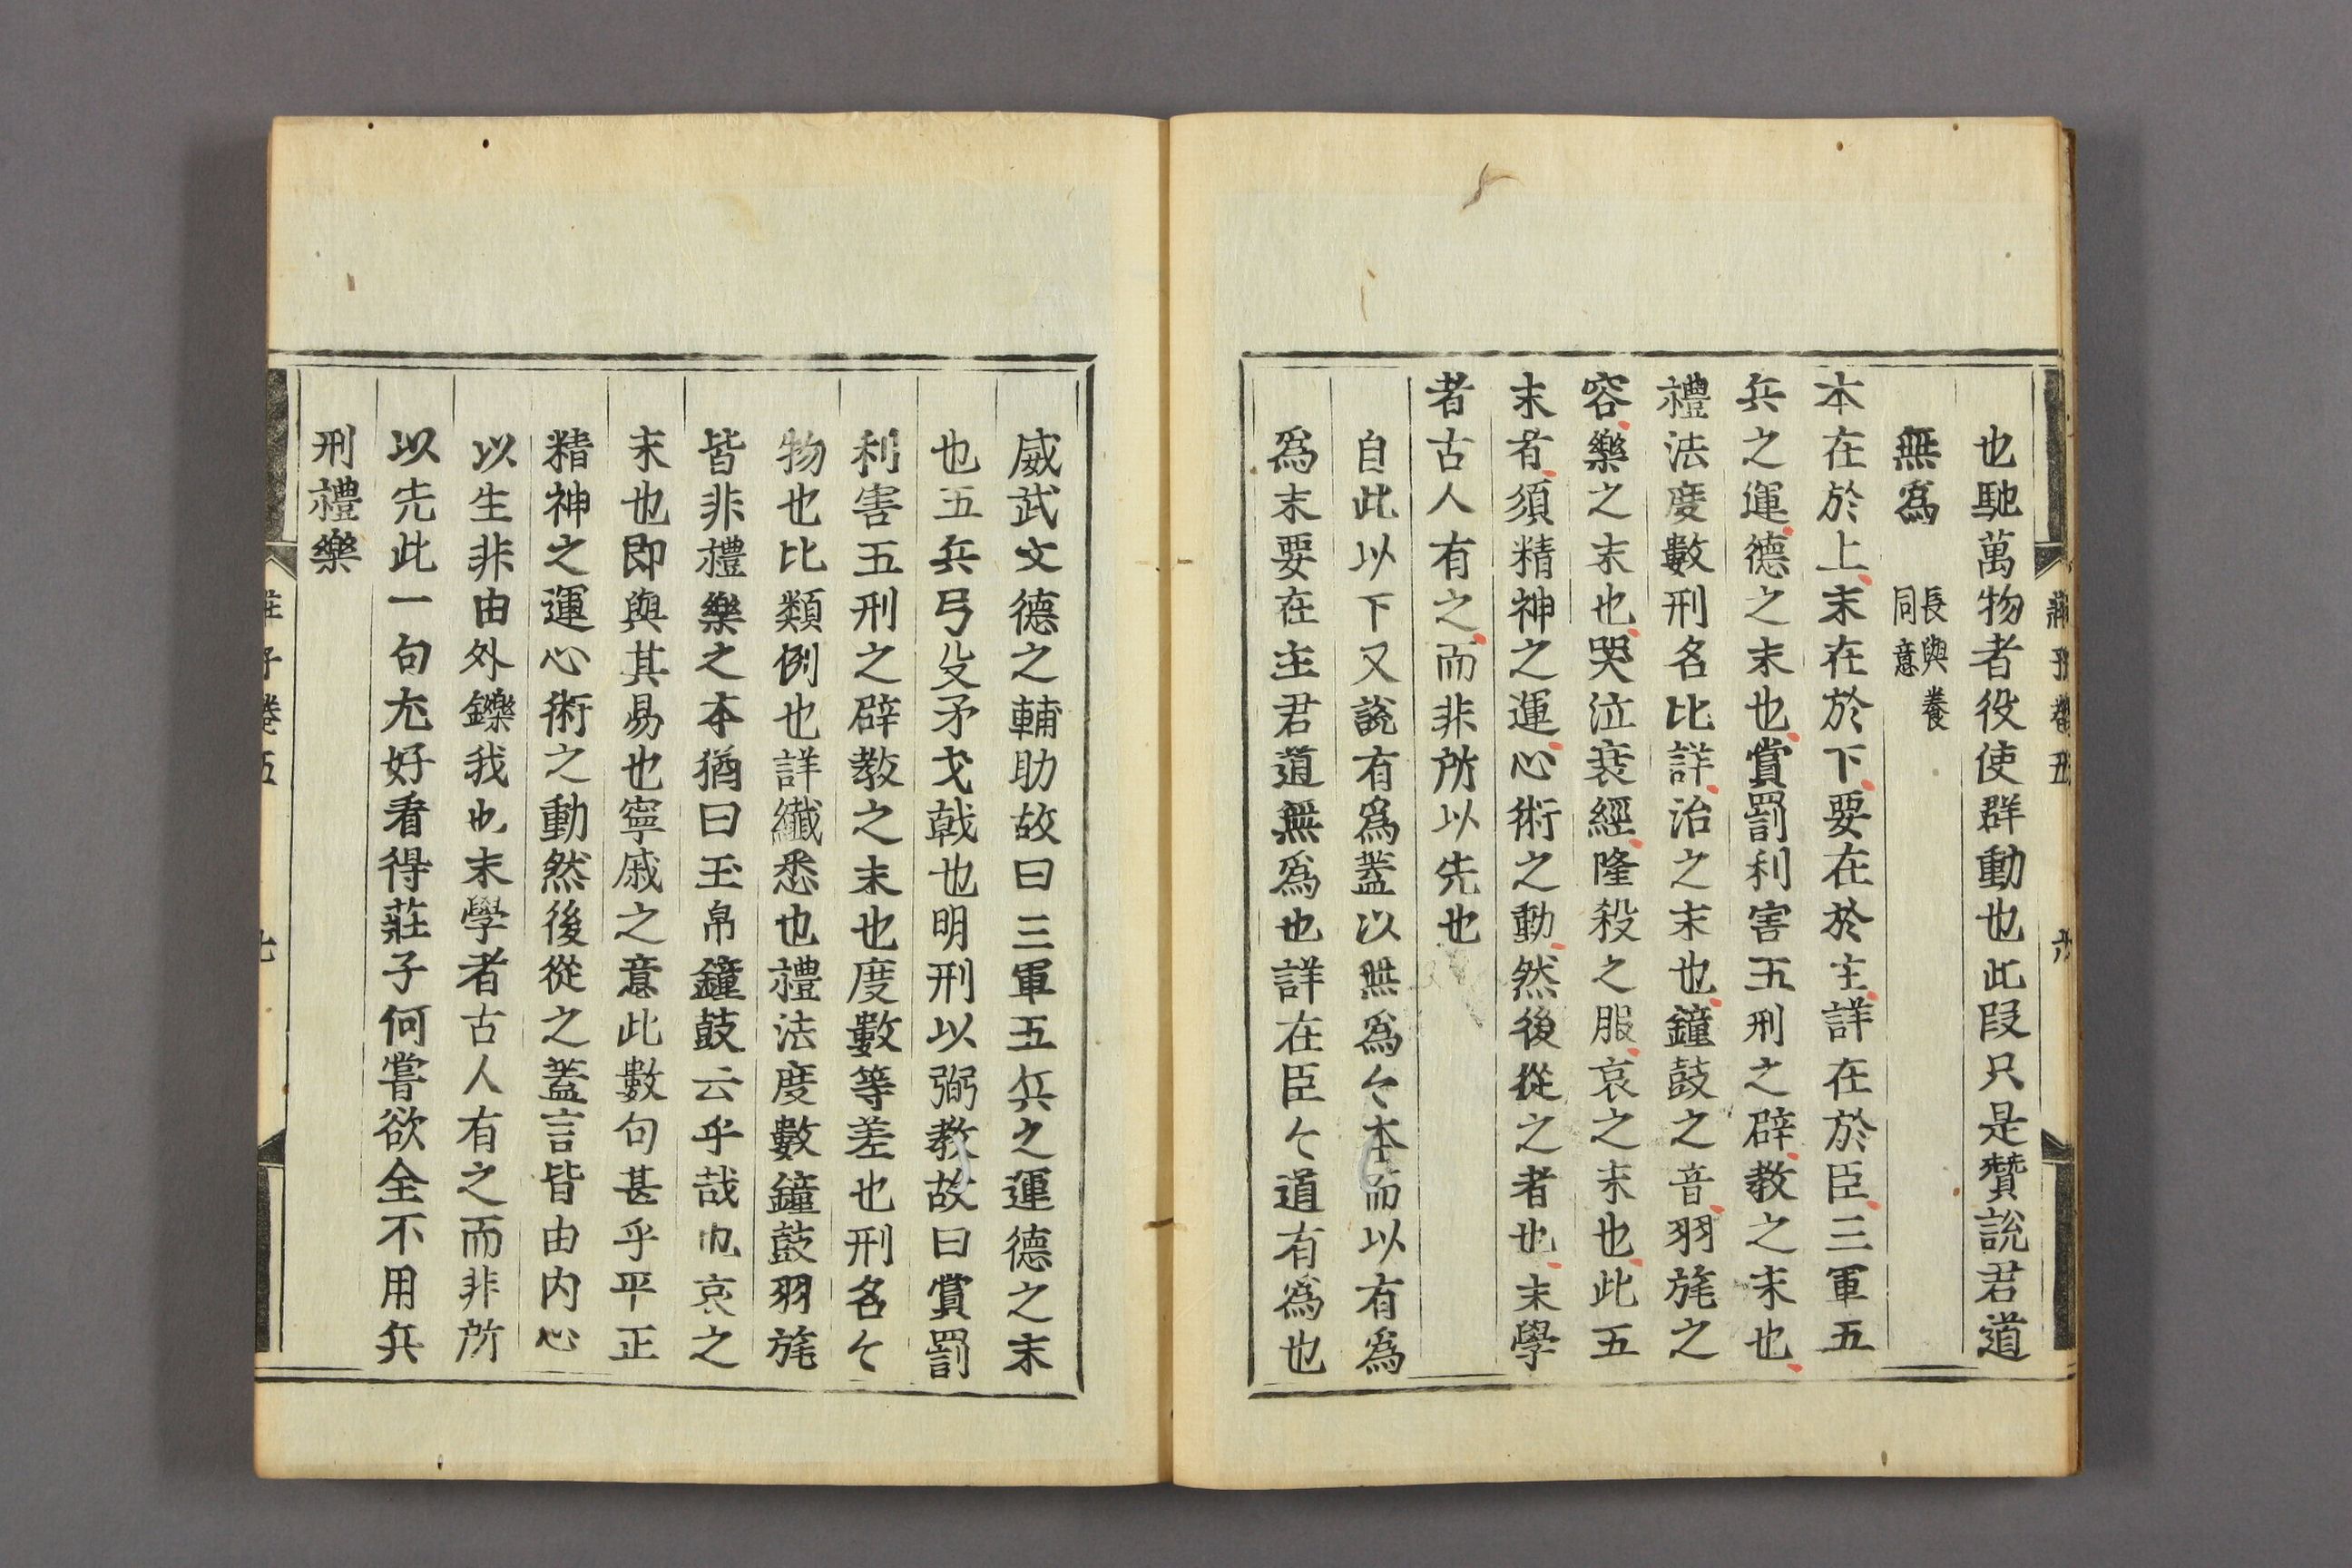 莊子卷五
六
也馳萬物者役使群動也此段只是贊說君道
無爲
長與養
同意
本在於上末在於下要在於主詳在於臣三軍五
兵之運德之末也賞罰利害五刑之辟教之末也
禮法度數刑名比詳治之末也鐘鼓之音羽旄之
容樂之末也哭泣衰絰隆殺之服哀之末也此五
末者須精神之運心術之動然後從之者也末學
者古人有之而非所以先也
自此以下又說有爲蓋以無爲〻本而以有爲
爲末要在主君道無爲也詳在臣〻道有爲也
威武文德之輔助故曰三軍五兵之運德之末
也五兵弓殳矛戈戟也明刑以弼教故曰賞罰
利害五刑之辟教之末也度數等差也刑名〻
物也比類例也詳纖悉也禮法度數鐘鼓羽旄
皆非禮樂之本猶曰玉帛鐘鼓云乎哉也哀之
末也即與其易也寧戚之意此數句甚乎平正
精神之運心術之動然後從之蓋言皆由内心
以生非由外鑠我也末學者古人有之而非所
以先此一句尤好看得莊子何嘗欲全不用兵
刑禮樂
莊子卷五
七